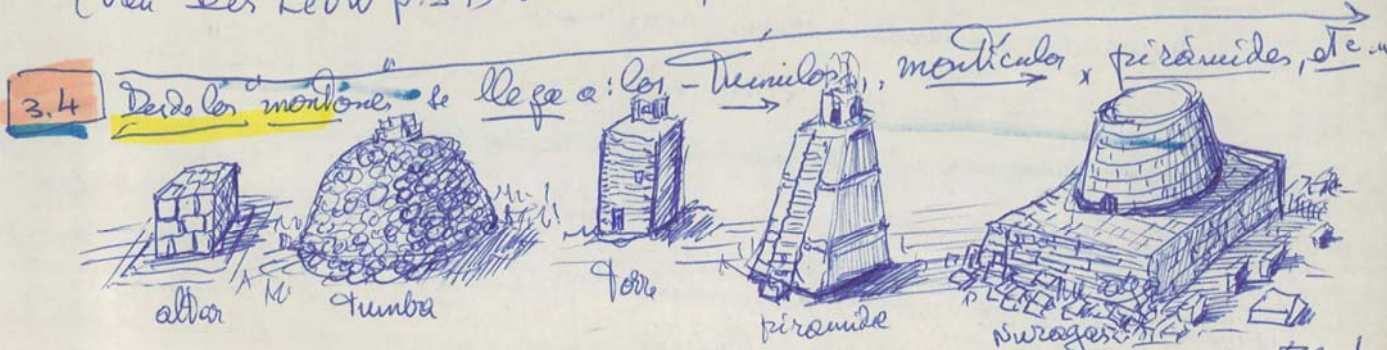 (Van der Leeuw p.
3.4 Desde los "montones" se llega a: los - Túmulos, montículos, pirámides, etc...
altar tumba Torre piramide Nuragas